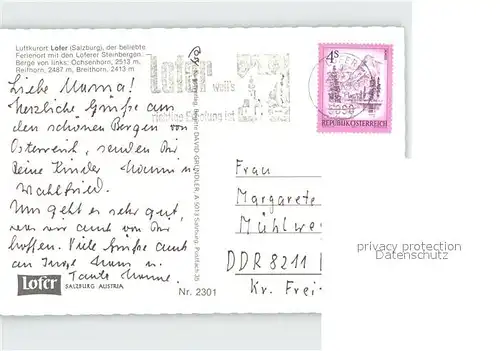 Luftkurort Lofer (Salzburg), der beliebte
Ferienort mit den Loferer Steinbergen.
Berge von links: Ochsenhorn, 2513 m,
Reifhorn, 2487 m, Breithorn, 2413 m
Liebe Mama!
Herzliche Grüße aus
den schönen Bergen von
Österreich, senden Dir
Deine Kinder
Wahlfried.
Uns geht es sehr gut,
was wir auch von Dir
hoffen. Viele Grüße auch
an
Tante
Lofer
SALZBURG AUSTRIA
Nr. 2301
DAVID GRÜNDLER, A 5013 Salzburg, Postfach 35
Lofer
weiß
richtige Erholung ist
4S
REPUBLIK ÖSTERREICH
Frau
Margarete
Mühlwe
DDR 8211
Kr. Frei-
privacy protection
Datenschutz